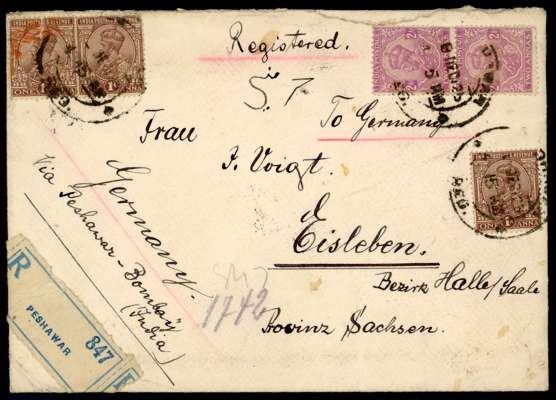 Registered.
S. 7
To Germany
Frau
J. Voigt.
Eisleben.
Bezirk Halle/Saale
Provinz Sachsen.
Germany.
Via Peshawar-Bombay
(India)
1742
R
PESHAWAR
847
INDIA POSTAGE & REVENUE
ONE ANNA
ONE ANNA
REG.